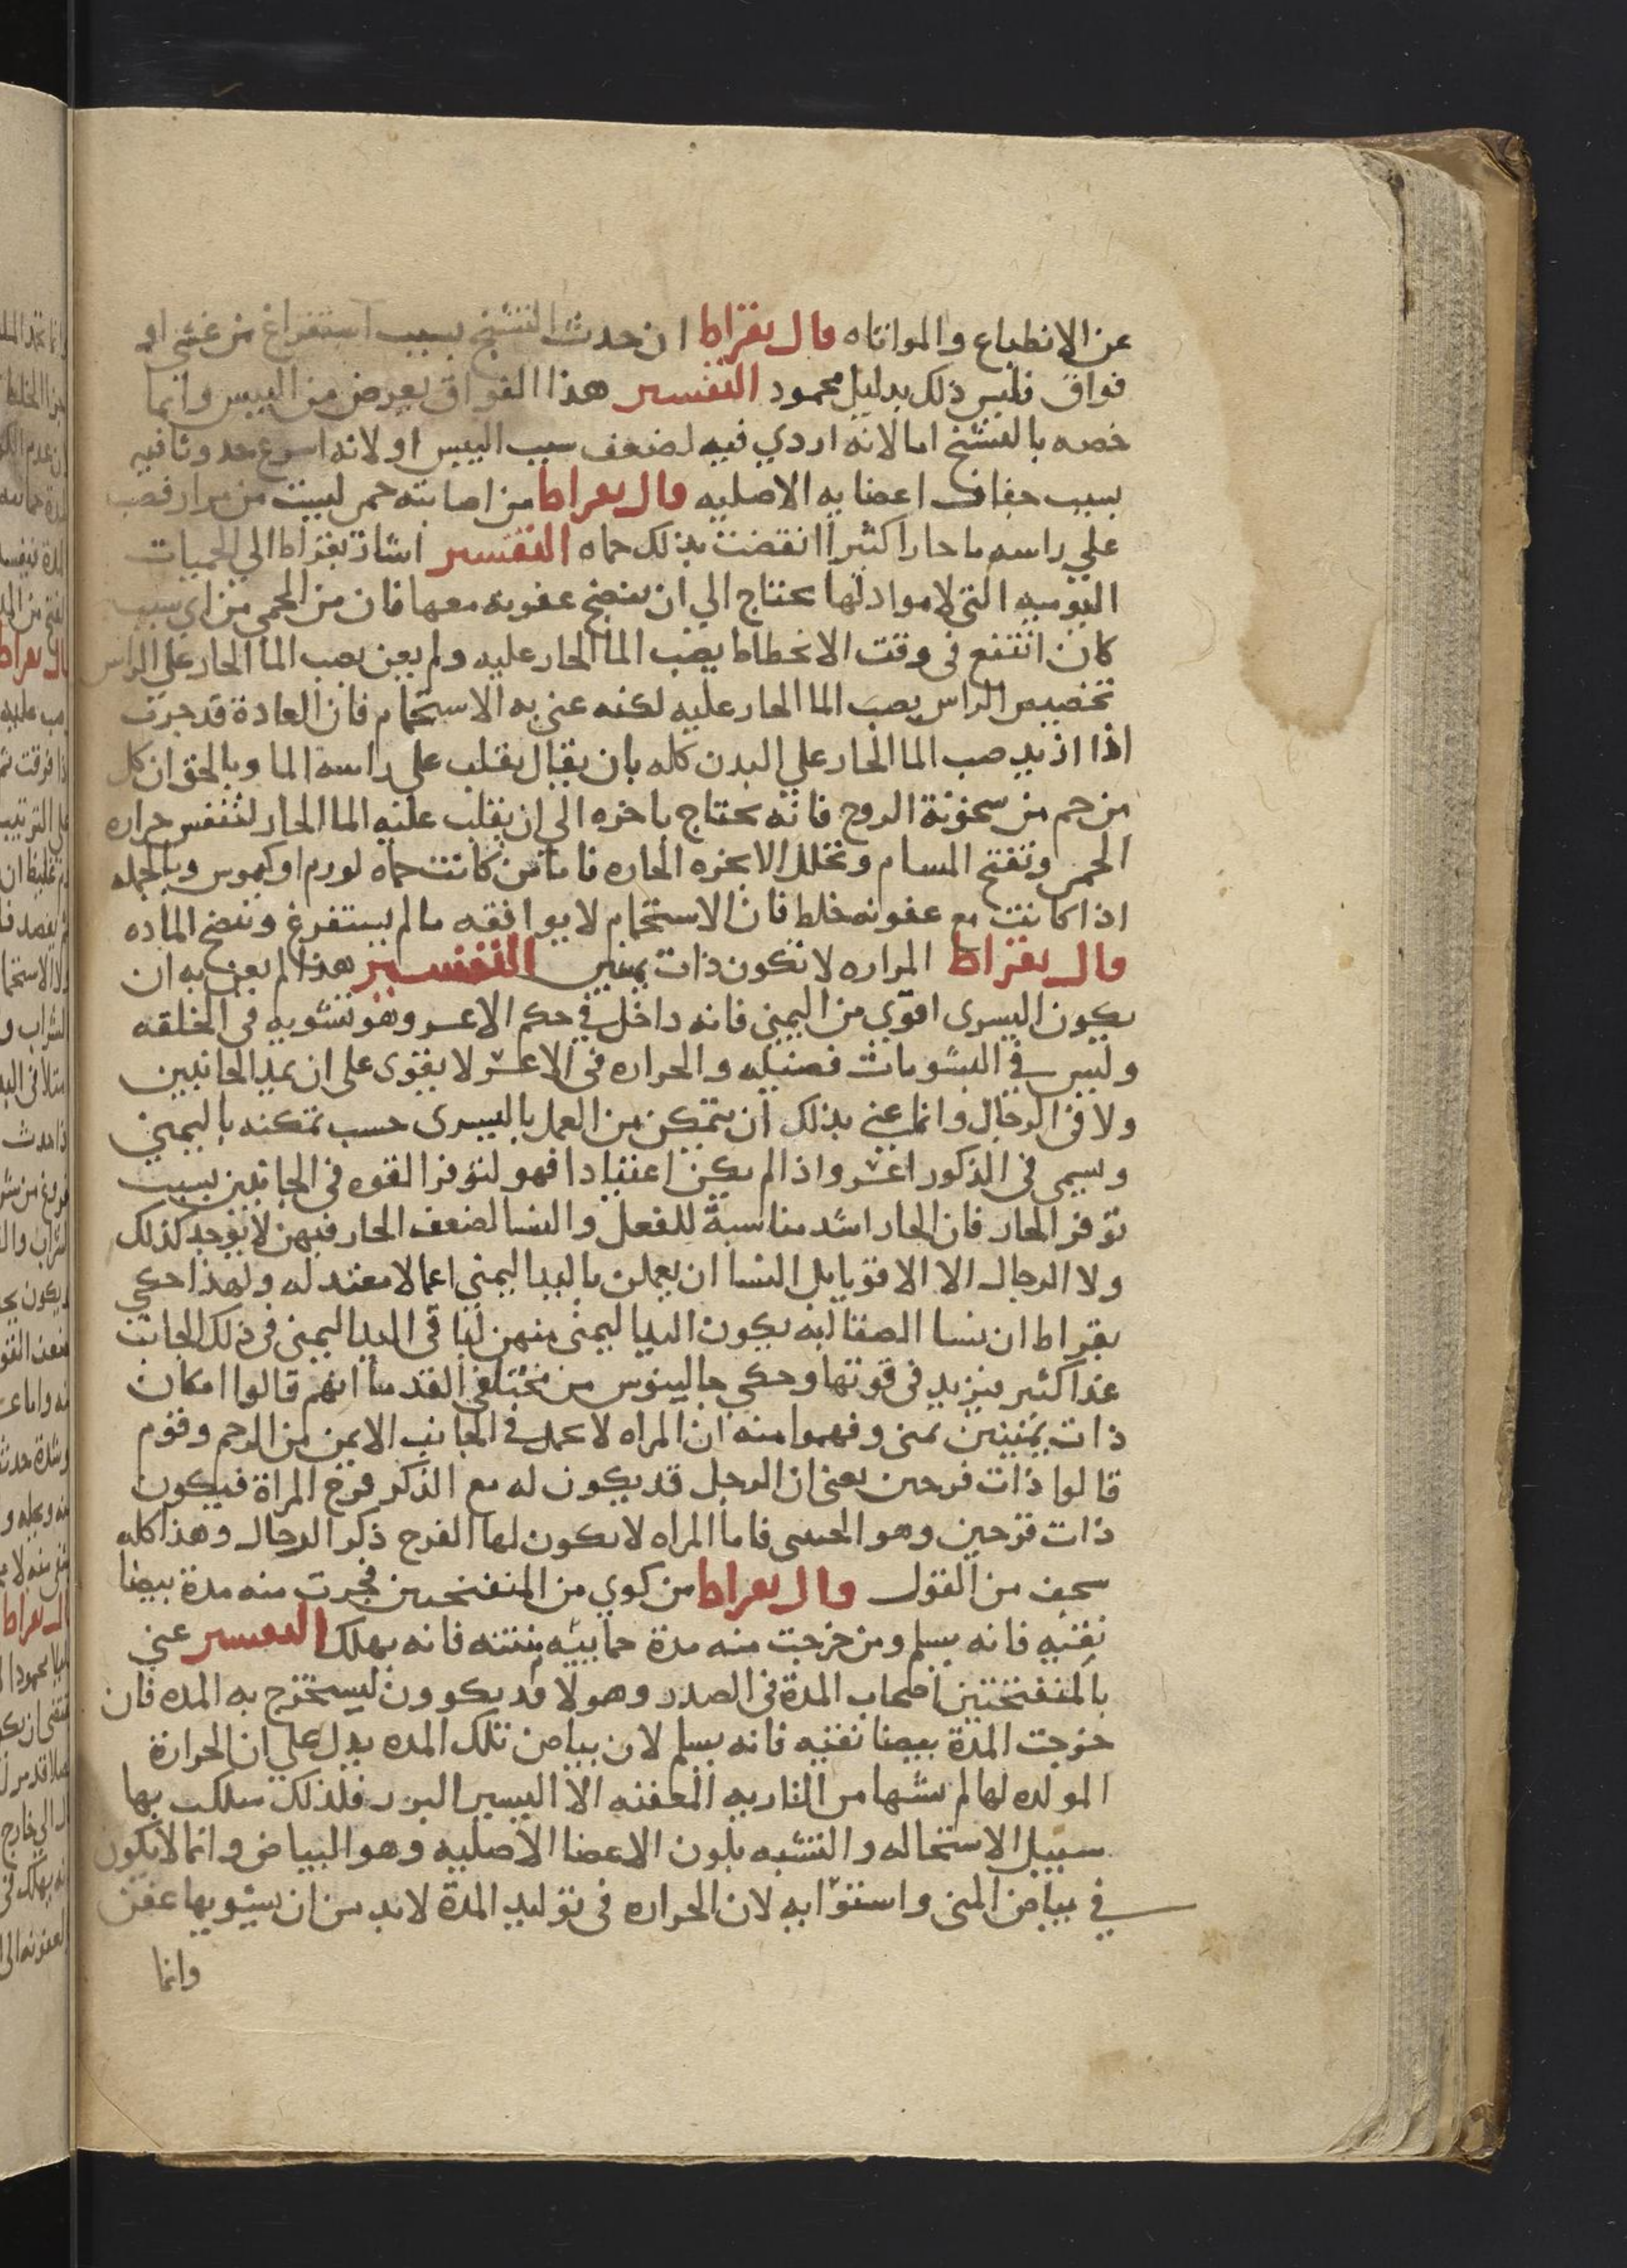 عن الانطباع والمواتاه قال بقراط ان حدث التشنج بسبب استفراغ من غشي او
فواق فليس ذلك بدليل محمود التفسير هذا الفواق يعرض من اليبس وانما
خصه بالتشنج اما لانه اردي فيه لضعف سبب اليبس او لانه اسرع حدوثا فيه
بسبب جفاف اعضايه الاصليه قال بقراط من اصابته حمى ليست من مرار فصب
علي راسه ما حارا كثيرا انقضت بذلك حماه التفسير اشار بقراط الي الحميات
اليوميه التي لا مواد لها يحتاج الي ان ينضج عفونه معها فان من الحمى من اي سبب
كان انتفع في وقت الانحطاط بصب الما الحار عليه ولم يعن بصب الما الحار علي الراس
تخصيص الراس بصب الما الحار عليه لكنه عني به الاستحمام فان العادة قد جرت
اذا اريد صب الما الحار علي البدن كله بان يقال يقلب علي راسه الما وبالحق ان كل
من حم من سخونة الروح فانه يحتاج باخره الي ان يقلب عليه الما الحار لتنفس حراره
الحمى وتفتح المسام وتحلل الابخره الحاره فاما من كانت حماه لورم او كيموس وبالجمله
اذا كانت مع عفونه خلط فان الاستحمام لا يوافقه ما لم يستفرغ وتنضج الماده
قال بقراط المراه لا تكون ذات يمينين التفسير هذا لم يعن به ان
يكون اليسرى اقوي من اليمني فانه داخل في حكم الاعسر وهو تشويه في الخلقه
وليس في التشويهات فضيله والحراره في الاعسر لا يقوى على ان يمد الجانبين
ولا في الرجال وانما عني بذلك ان يتمكن من العمل باليسرى حسب تمكنه باليمني
وسمي في الذكور اعسر واذا لم يكن اعتيادا فهو لتوفر القوه في الجانبين بسبب
توفر الحار فان الحار اشد مناسبة للفعل والنسا لضعف الحار فيهن لا يوجد كذلك
ولا الرجال الا الاقويا بل النسا ان يعملن باليد اليمني اعمالا معتدله ولهذا حكي
بقراط ان نسا الصقالبه يكون اليد اليمنى منهن ليا في اليد اليمني في ذلك الجانب
غذا كثير فيزيد في قوتها وحكي جالينوس من مختلفي القدما انهم قالوا امكان
ذات يمينين يمنى وفهموا منه ان المراه لا تحمل في الجانب الايمن من الرحم وقوم
قالوا ذات فرجين يعني ان الرجل قد يكون له مع الذكر فرج المراة فيكون
ذات فرجين وهو الخنثى فاما المراه لا يكون لها الفرج ذكر الرجال وهذا كله
سخف من القول قال بقراط من كوي من المتفتحين فجرت منه مدة بيضا
نقيه فانه يسلم ومن خرجت منه مدة حمائيه منتنه فانه يهلك التفسير عني
بالمتفتحين اصحاب المدة في الصدر وهولا قد يكوون ليستخرج به المده فان
خرجت المدة بيضا نقيه فانه يسلم لان بياض تلك المده يدل علي ان الحرارة
المولده لها لم يشبها من الناريه المعفنه الا اليسير النزر فلذلك سلكت بها
سبيل الاستحاله والتشبه بلون الاعضا الاصليه وهو البياض وانما لا يكون
في بياض المني واستوايه لان الحراره في توليد المدة لابد من ان يشوبها عفن
وانما